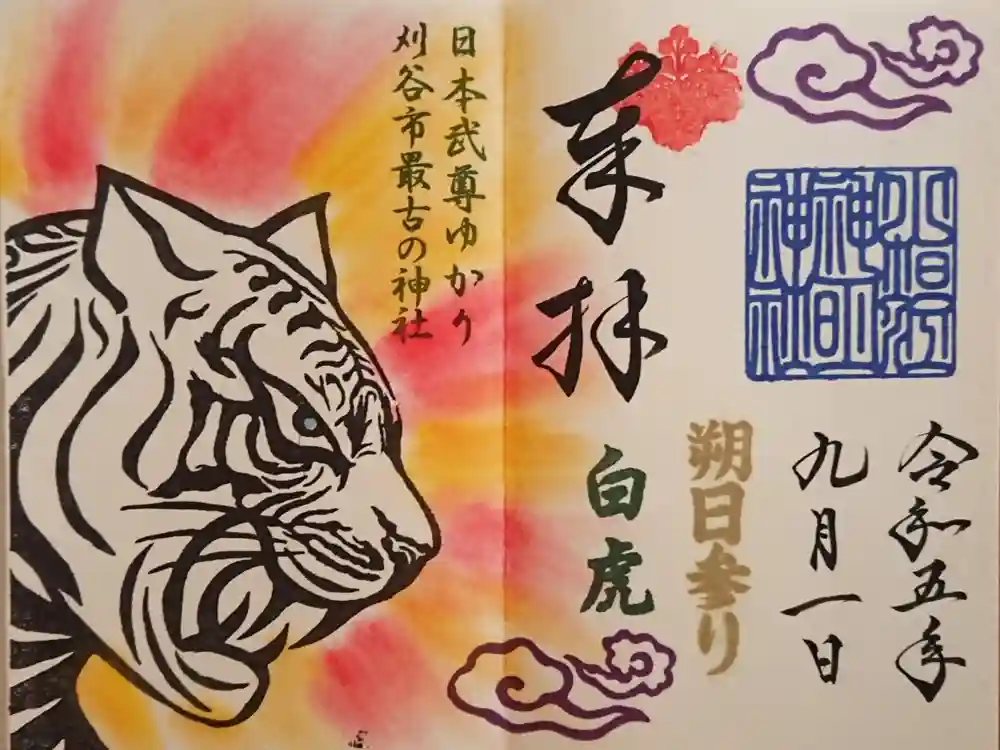 小垣江
神明
神社
令和五年
九月一日
朔日参り
奉拝
白虎
日本武尊ゆかり
刈谷市最古の神社